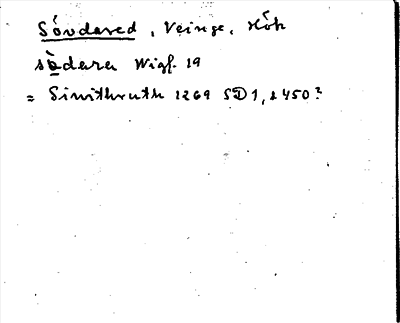 Sóvdared, Veinge, Hök
sǒdara Wigf. 19
= Siwithruth 1269 SD 1, s 450?